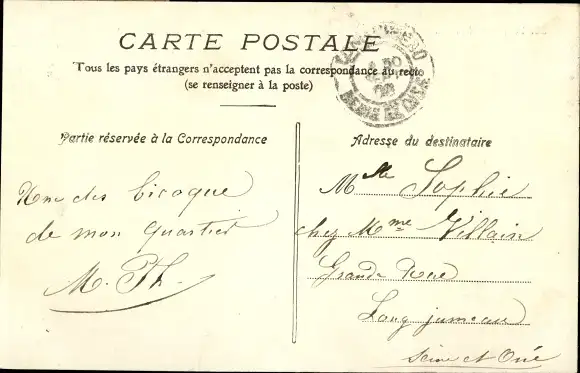 CARTE POSTALE
Tous les pays étrangers n'acceptent pas la correspondance au recto
(se renseigner à la poste)
Partie réservée à la Correspondance
Une des
de mon quartier
M. Th.
Adresse du destinataire
Mlle Sophie
chez Mme Villain
Grande Rue
Long jumeau
Seine et Oise
SEINE ET OISE